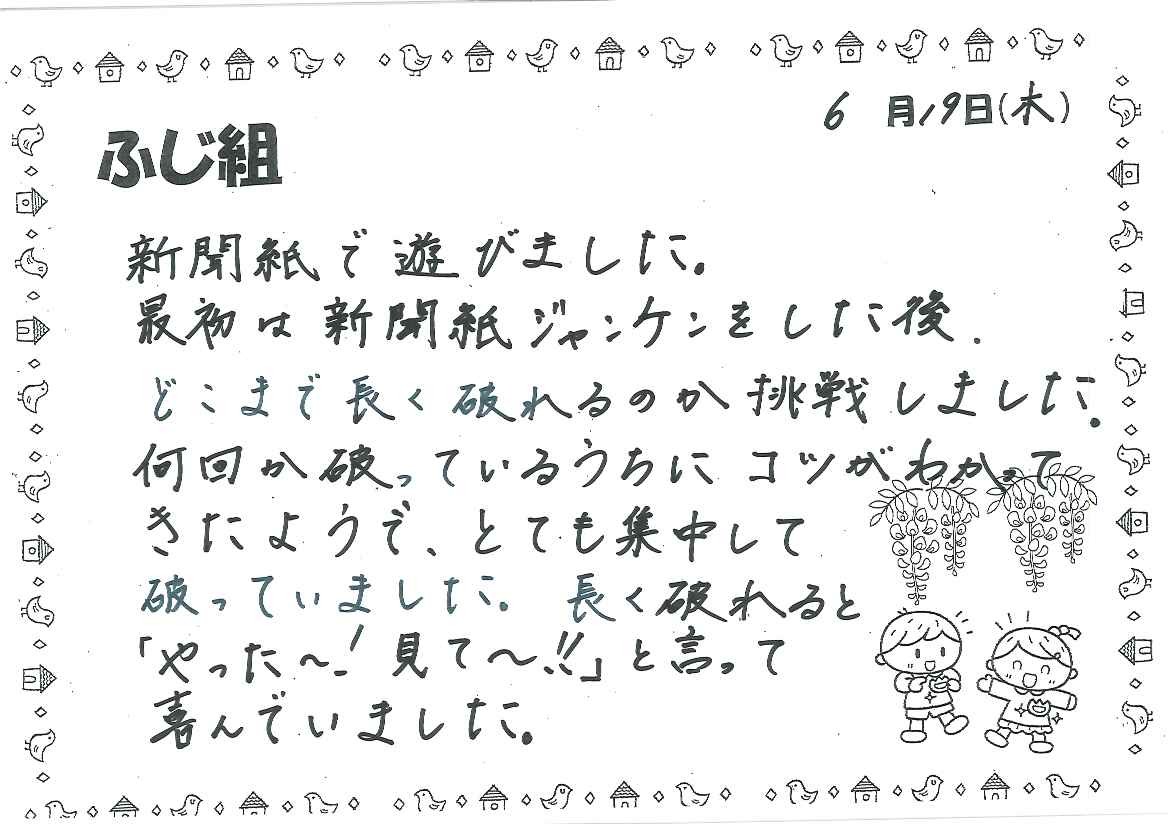 6月19日(木)
ふじ組
新聞紙で遊びました。
最初は新聞紙ジャンケンをした後、
どこまで長く破れるのか挑戦しました。
何回か破っているうちにコツがわかって
きたようで、とても集中して
破っていました。長く破れると
「やった〜!見て〜!!」と言って
喜んでいました。